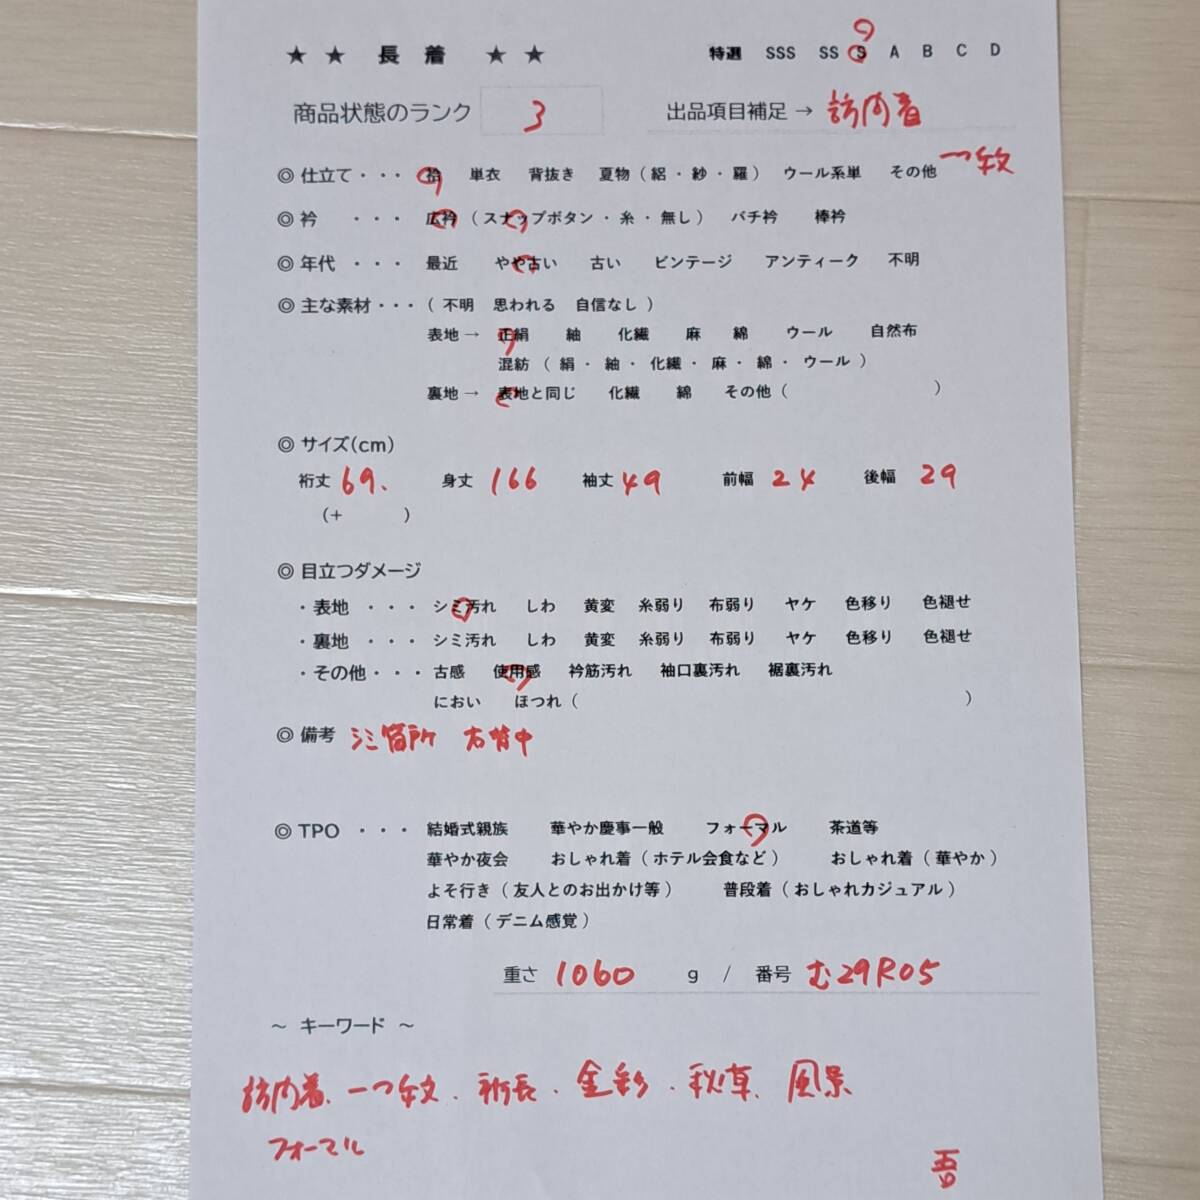 ★ ★ 長 着 ★ ★ 特選 SSS SS S A B C D
商品状態のランク 3 出品項目補足 → 訪問着
◎ 仕立て・・・ 袷 単衣 背抜き 夏物 ( 絽 ・ 紗 ・ 羅 ) ウール系単 その他 一つ紋
◎ 衿 ・・・ 広衿 ( スナップボタン ・ 糸 ・ 無し ) バチ衿 棒衿
◎ 年代 ・・・ 最近 やや古い 古い ビンテージ アンティーク 不明
◎ 主な素材・・・ ( 不明 思われる 自信なし )
表地 → 正絹 紬 化繊 麻 綿 ウール 自然布
混紡 ( 絹 ・ 紬 ・ 化繊 ・ 麻 ・ 綿 ・ ウール )
裏地 → 表地と同じ 化繊 綿 その他 ( )
◎ サイズ(cm)
裄丈 69. 身丈 166 袖丈 49 前幅 24 後幅 29
(+ )
◎ 目立つダメージ
・表地 ・・・ シミ汚れ しわ 黄変 糸弱り 布弱り ヤケ 色移り 色褪せ
・裏地 ・・・ シミ汚れ しわ 黄変 糸弱り 布弱り ヤケ 色移り 色褪せ
・その他・・・ 古感 使用感 衿筋汚れ 袖口裏汚れ 裾裏汚れ
におい ほつれ ( )
◎ 備考 シミ箇所 右背中
◎ TPO ・・・ 結婚式親族 華やか慶事一般 フォーマル 茶道等
華やか夜会 おしゃれ着 ( ホテル会食など ) おしゃれ着 ( 華やか )
よそ行き ( 友人とのお出かけ等 ) 普段着 ( おしゃれカジュアル )
日常着 ( デニム感覚 )
重さ 1060 g / 番号 む29R05
～ キーワード ～
訪問着、一つ紋、裄長、金彩、秋草、風景
フォーマル
吾